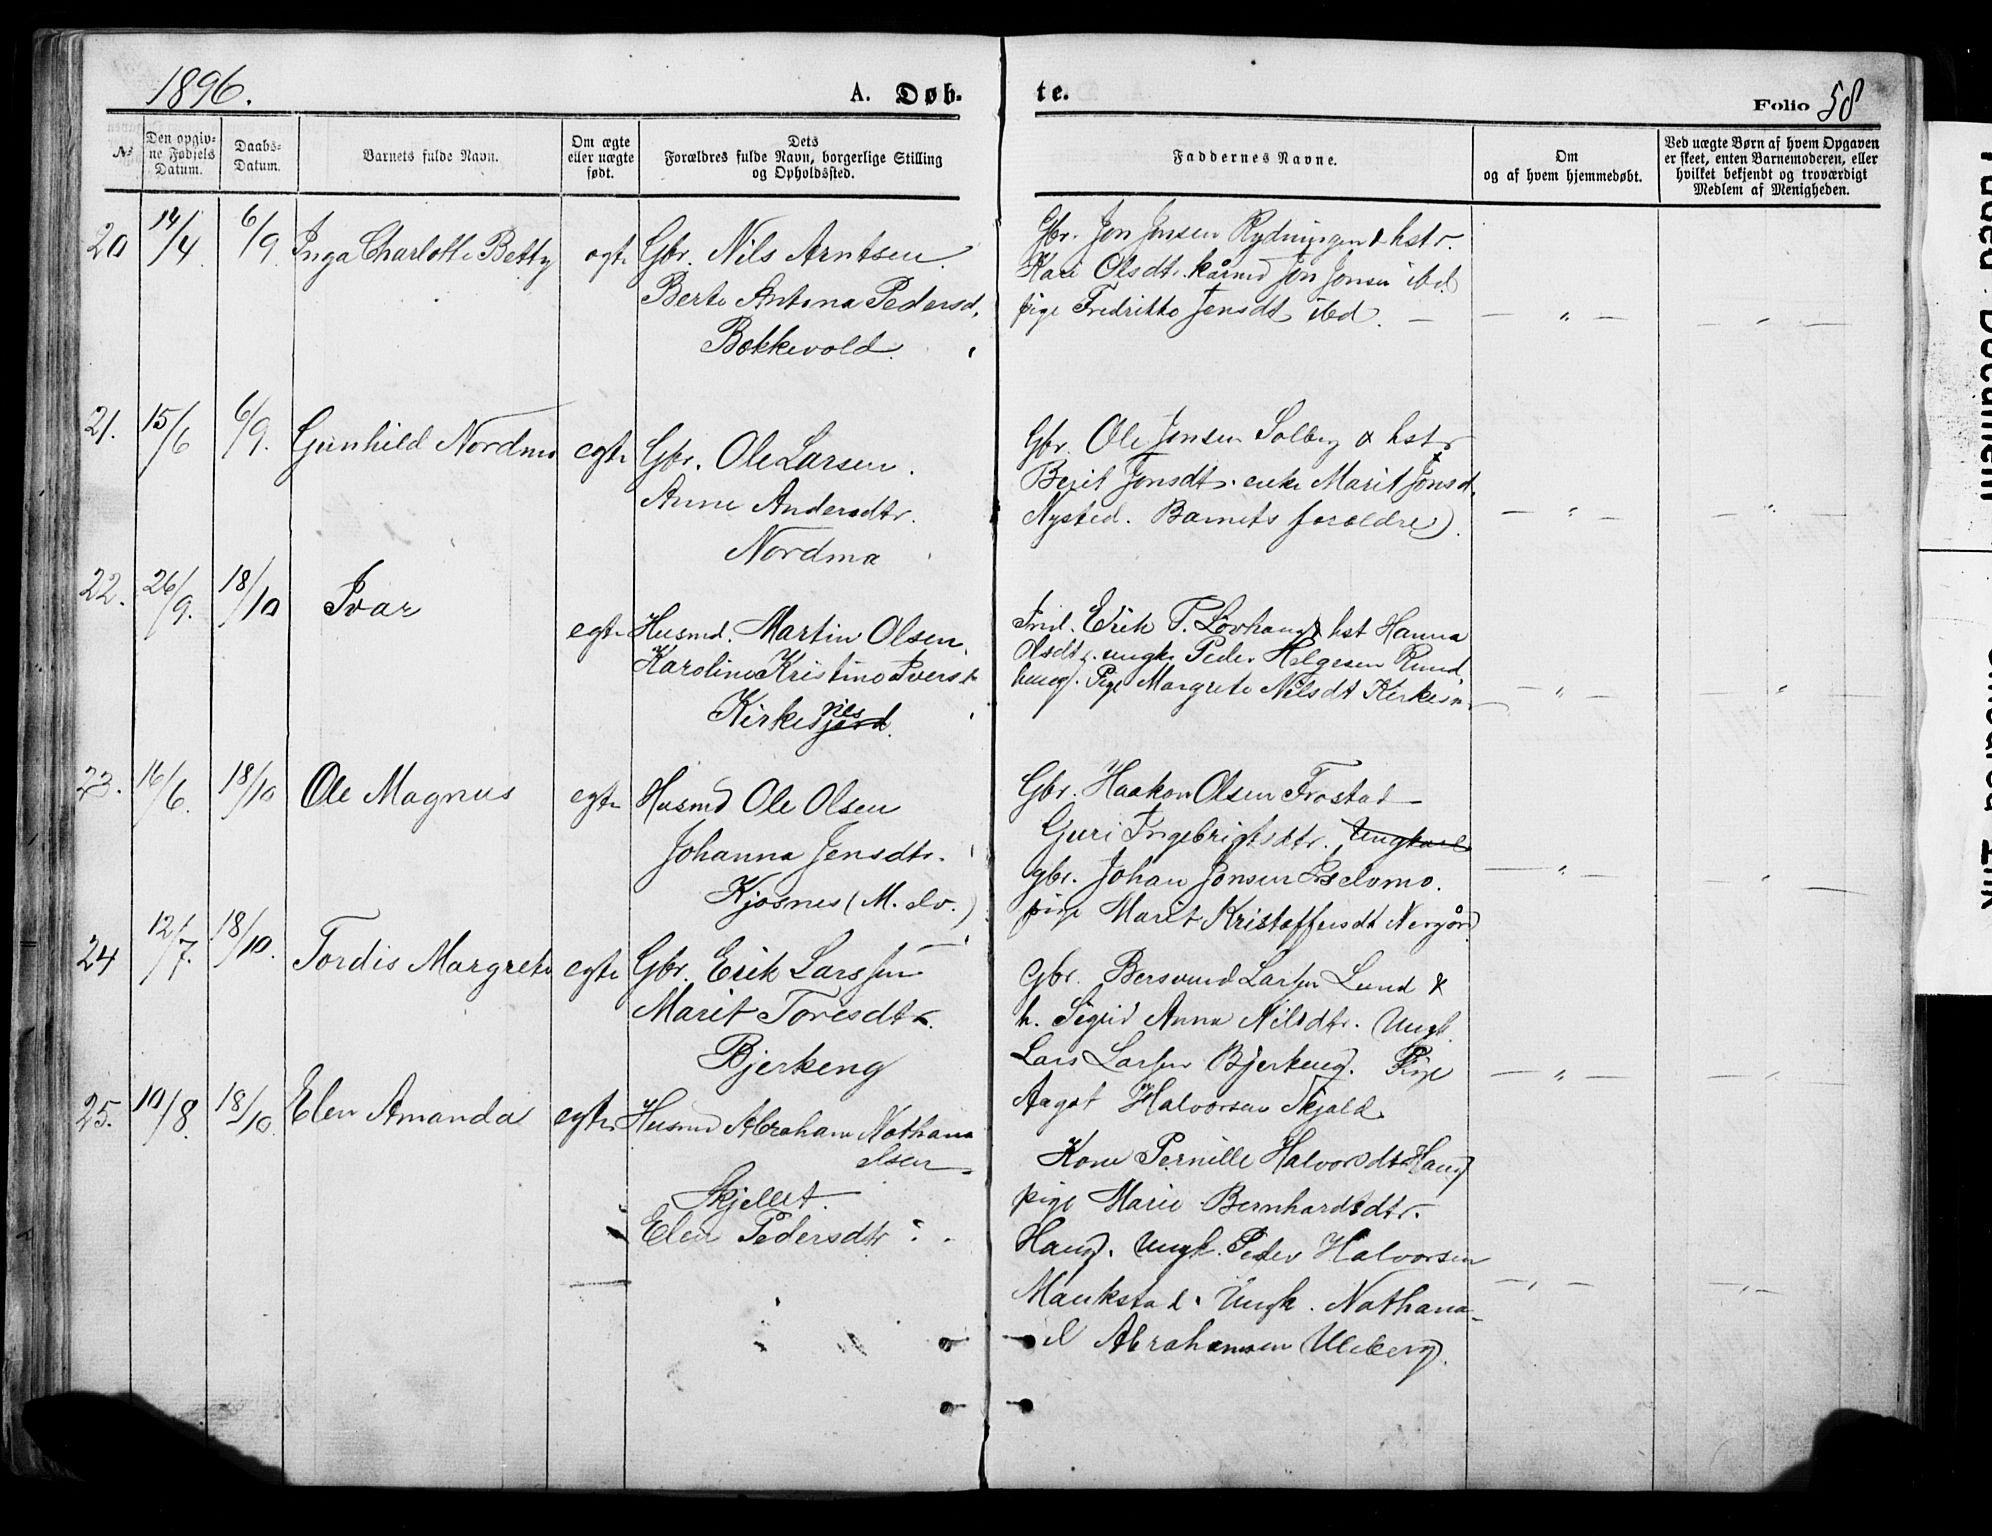 1896.
A. Døb-
te.
Folio 58
№
Den opgiv-
ne Fødsels
Datum.
Daabs-
Datum.
Barnets fulde Navn.
Om ægte
eller uægte
født.
Dets
Forældres fulde Navn, borgerlige Stilling
og Opholdssted.
Faddernes Navne.
Om
og af hvem hjemmedøbt.
Ved uægte Børn af hvem Opgaven
er skeet, enten Barnemoderen, eller
hvilket bekjendt og troværdigt
Medlem af Menigheden.
20 14/4. 6/9. Inga Charlotte Betty
egte
Gbr. Nils Arntsen.
Berte Antona Pedersd.
Bekkevold.
Gbr. Jon Jonsen Rydningen & hstr.
Kari Olsdtr. kårmd Jon Jonsen ibd.
pige Fredrikke Jensdt. ibd. —
— " —
— " —
21. 15/6 6/9. Gunhild Nordmo
egte
Gbr. Ole Larsen.
Anne Andersdtr.
Nordmo
Gbr. Ole Jonsen Solberg & hstr
Berit Jonsdtr. enke Marit Jonsd.
Nysted. Barnets forældre).
— " —
— " —
22. 26/9. 18/10 Ivar
egte
Husmd. Martin Olsen.
Karoline Kristine Iversdt
Kirkesnes
Erik P. Løvhaug & hst Hanna
Olsdtr. ungk. Peder Helgesen Rund-
haug. Pige Margrete Nilsdt Kirkesn.
— " —
"
23. 16/6. 18/10 Ole Magnus
egte
Husmd Ole Olsen
Johanna Jensdtr.
Kjosnes (M. elv.)
Gbr. Haakon Olsen Frostad —
Guri Ingebrigtsdtr. Ungkarl
gbr. Johan Jonsen
pige Maret Kristoffersdt Nergård
— " —
"
24 12/7. 18/10. Tordis Margrete
egte
Gbr. Erik Larssen
Marit Toresdtr.
Bjerkeng
Gbr. Bersvend Larsen Lund &
h. Sigrid Anna Nilsdtr. Ungk.
Lars Larsen Bjerkeng. Pige
Aagot Halvorsen Skjold.
— " —
25. 10/8. 18/10. Elen Amanda
egte
Husmd Abraham Nathana
elsen
Skjellet.
Elen Pedersdtr
Kone Pernille Halvorsdt Haug
pige Marie Bernhardsdtr.
Haug. Ungk. Peder Halvorsen
Maukstad. Ungk. Nathana-
el Abrahamsen Uleberg.